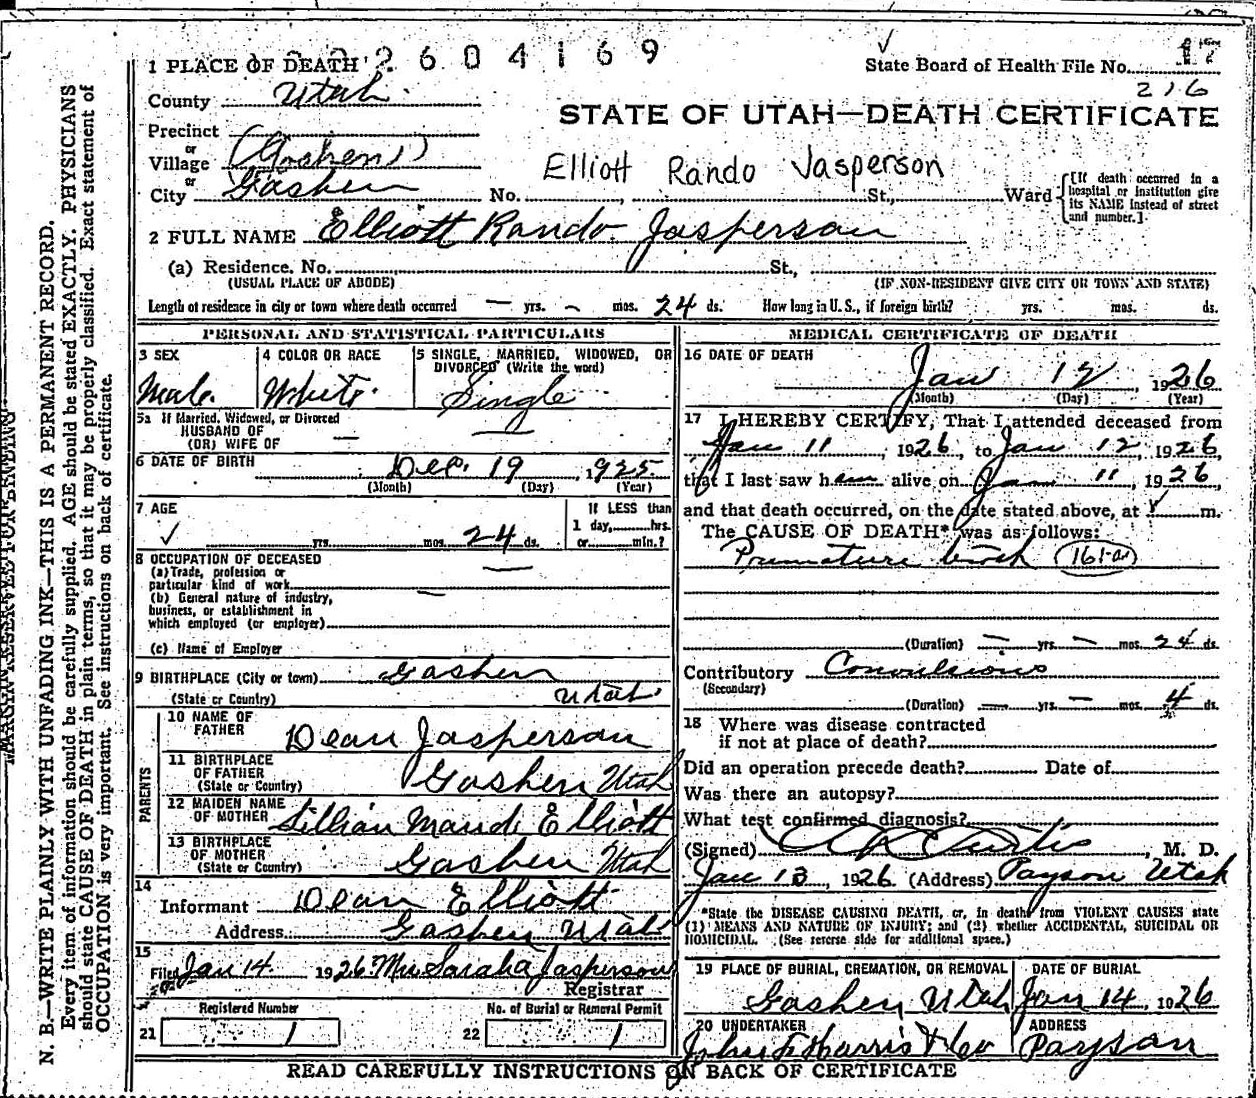 1 PLACE OF DEATH 2604169 State Board of Health File No. 17
County Utah 216
STATE OF UTAH—DEATH CERTIFICATE
Precinct
or
Village (Goshen)
or
City Goshen No. St., Ward {[If death occurred in a hospital or institution give its NAME instead of street and number.]
Elliott Rando Jasperson
2 FULL NAME Elliott Rando Jasperson
(a) Residence. No. St.,
(USUAL PLACE OF ABODE) (IF NON-RESIDENT GIVE CITY OR TOWN AND STATE)
Length of residence in city or town where death occurred — yrs. – mos. 24 ds. How long in U. S., if foreign birth? yrs. mos. ds.
PERSONAL AND STATISTICAL PARTICULARS
3 SEX 4 COLOR OR RACE 5 SINGLE, MARRIED, WIDOWED, OR
DIVORCED (Write the word)
Male. White. Single
5a If Married, Widowed, or Divorced
HUSBAND OF
(OR) WIFE OF —
6 DATE OF BIRTH Dec. 19, 1925
(Month) (Day) (Year)
7 AGE If LESS than
1 day, hrs.
✓ yrs. mos. 24 ds. or min.?
8 OCCUPATION OF DECEASED
(a) Trade, profession or
particular kind of work —
(b) General nature of industry, —
business, or establishment in
which employed (or employer)
(c) Name of Employer
9 BIRTHPLACE (City or town) Goshen
(State or Country) Utah
PARENTS
10 NAME OF
FATHER Dean Jasperson
11 BIRTHPLACE
OF FATHER Goshen Utah
(State or Country)
12 MAIDEN NAME
OF MOTHER Lillian Maud Elliott
13 BIRTHPLACE
OF MOTHER Goshen Utah
(State or Country)
14
Informant Dean Elliott
Address Goshen Utah
15
Filed Jan 14 1926 Mrs Sarah A Jasperson
Registrar
Registered Number No. of Burial or Removal Permit
21 1 22 1
MEDICAL CERTIFICATE OF DEATH
16 DATE OF DEATH
Jan 12, 1926
(Month) (Day) (Year)
17 I HEREBY CERTIFY, That I attended deceased from
Jan 11, 1926, to Jan 12, 1926,
that I last saw him alive on Jan 11, 1926,
and that death occurred, on the date stated above, at ✓ m.
The CAUSE OF DEATH* was as follows:
Premature birth (161-a)
(Duration) — yrs. — mos. 24 ds.
Contributory Convulsions
(Secondary)
(Duration) — yrs. — mos. 4 ds.
18 Where was disease contracted
if not at place of death?
Did an operation precede death? Date of
Was there an autopsy?
What test confirmed diagnosis?
(Signed) Curtis, M. D.
Jan 13, 1926 (Address) Payson Utah
*State the DISEASE CAUSING DEATH, or, in death from VIOLENT CAUSES state
(1) MEANS AND NATURE OF INJURY; and (2) whether ACCIDENTAL, SUICIDAL OR
HOMICIDAL. (See reverse side for additional space.)
19 PLACE OF BURIAL, CREMATION, OR REMOVAL DATE OF BURIAL
Goshen, Utah Jan 14, 1926
20 UNDERTAKER ADDRESS
John F Harris & Co Payson
READ CAREFULLY INSTRUCTIONS ON BACK OF CERTIFICATE
MARGIN RESERVED FOR BINDING
N. B.—WRITE PLAINLY WITH UNFADING INK—THIS IS A PERMANENT RECORD.
Every item of information should be carefully supplied. AGE should be stated EXACTLY. PHYSICIANS
should state CAUSE OF DEATH in plain terms, so that it may be properly classified. Exact statement of
OCCUPATION is very important. See instructions on back of certificate.